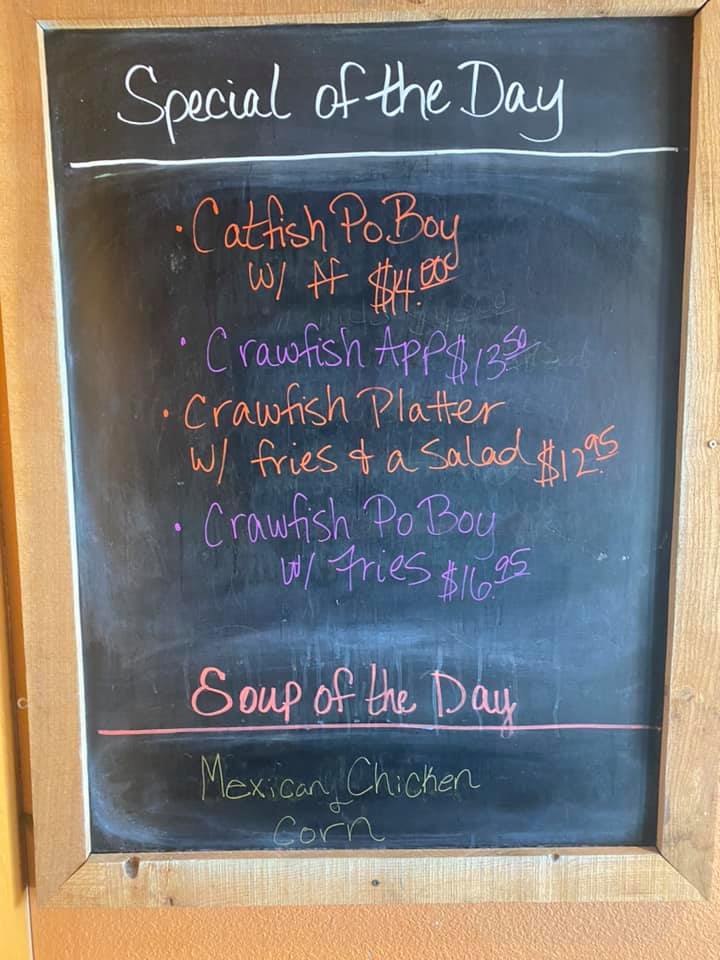 Special of the Day
• Catfish Po.Boy
w/ ff $14.00
• Crawfish App $13.50
• Crawfish Platter
w/ fries & a Salad $12.95
• Crawfish Po Boy
w/ Fries $16.95
Soup of the Day
Mexican Chicken
Corn